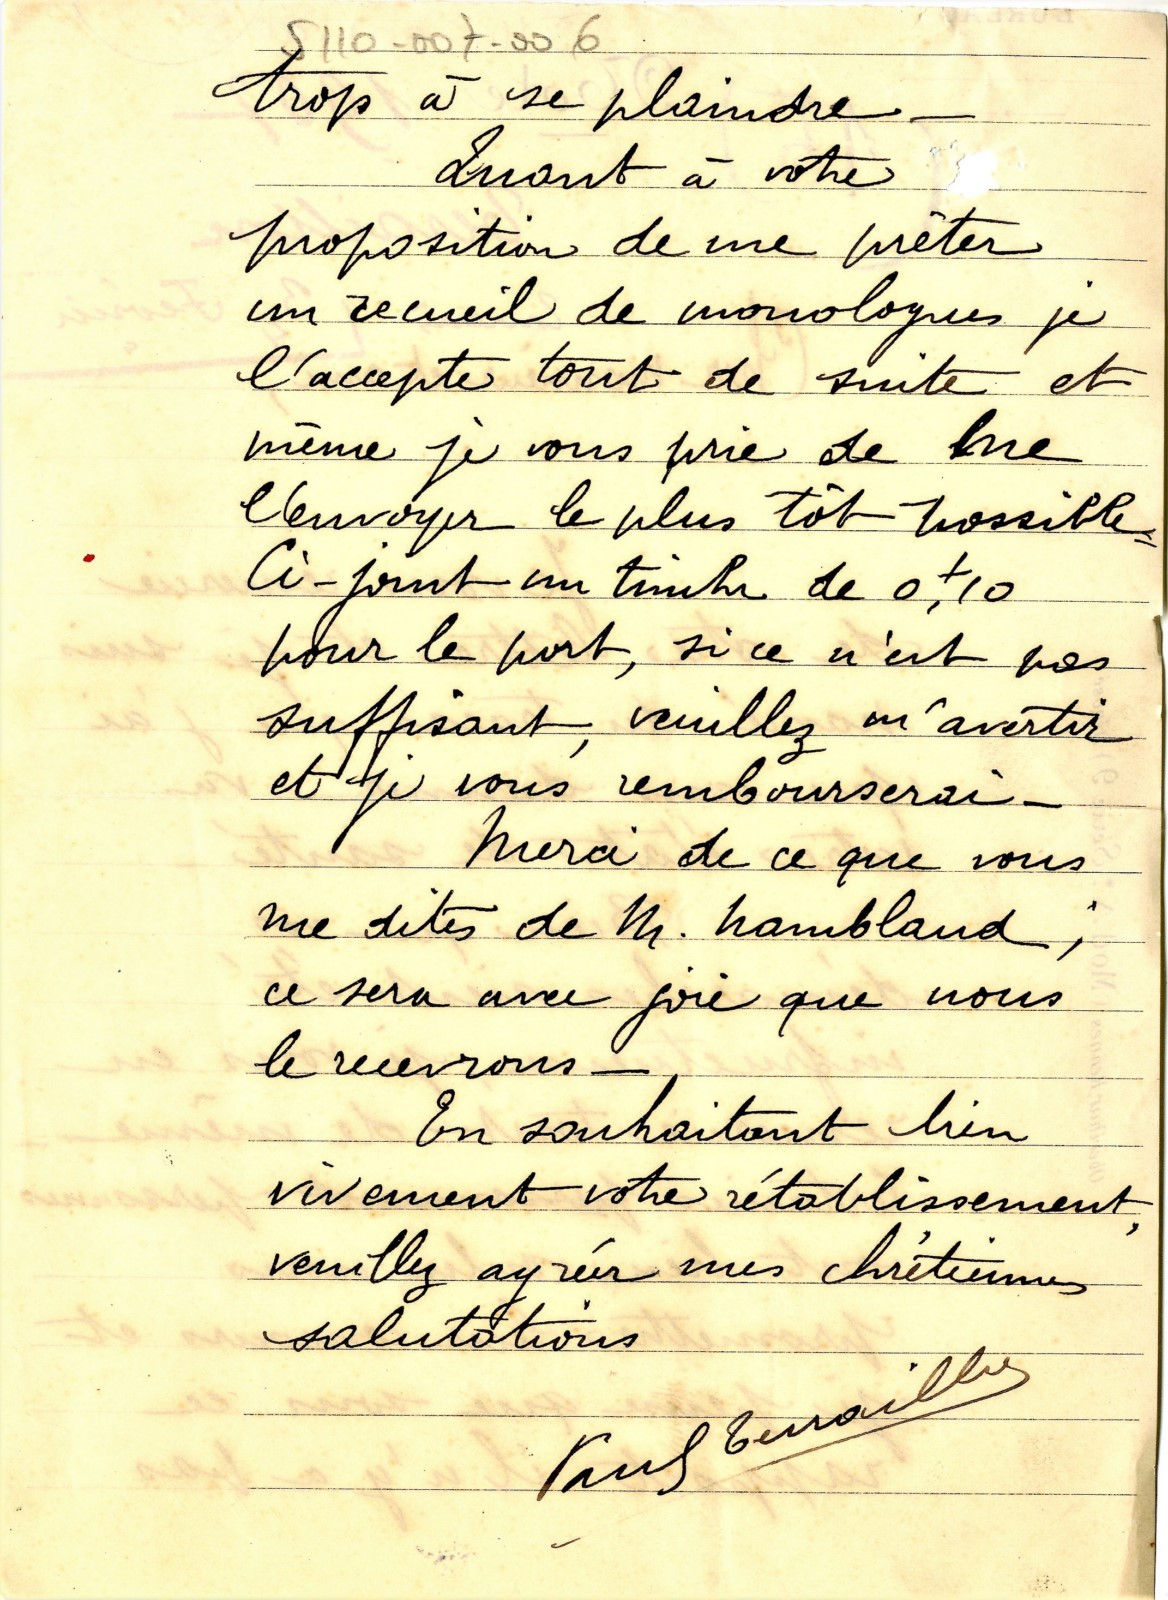 trop à se plaindre _
Quant à votre
proposition de me prêter
un recueil de monologues je
l'accepte tout de suite et
même je vous prie de me
l'envoyer le plus tôt possible.
Ci-joint un timbre de 0f,10
pour le port, si ce n'est pas
suffisant, veuillez m'avertir
et je vous rembourserai _
Merci de ce que vous
me dites de M. Nambland ;
ce sera avec joie que nous
le recevrons _
En souhaitant bien
vivement votre rétablissement,
veuillez agréer mes chrétiennes
salutations
Paul